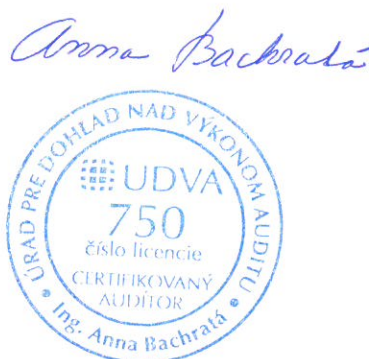 Anna Bachratá
ÚRAD PRE DOHĽAD NAD VÝKONOM AUDITU
UDVA
750
číslo licencie
CERTIFIKOVANÝ
AUDÍTOR
• Ing. Anna Bachratá •